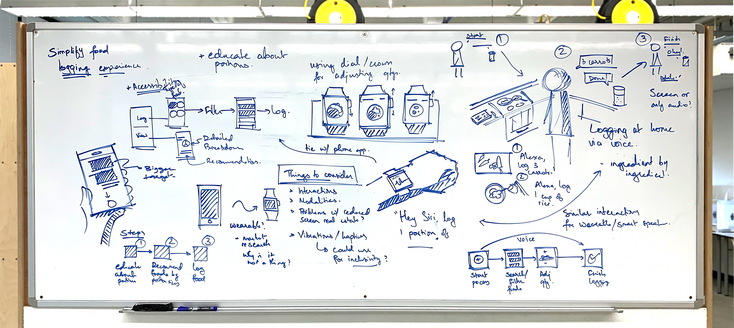 Simplify food
logging experience.
+ educate about
portions.
+ Accessibility
Log
Filter
Log.
Detailed
Breakdown
Recommendations.
Bigger
Steps
1
2
3
educate
about
Log
food
using dial/crown
for adjusting qty.
tie w/ phone app.
Things to consider
> Interactions
> Modalities
> Problems w/ reduced
screen real estate?
> Vibrations/Haptics
↳ Could use
for inclusivity?
wearable?
+ market
research
why is it
not a thing?
"Hey Siri, log
1 portion of
Start
1
2
3
Finish
3 carrots
Done!
Screen or
only audio?
Logging at home
via voice.
- ingredient by
ingredient.
1
Alexa,
log 3
carrots.
2
Alexa, log
1 cup of
rice.
Similar interaction
for wearable/smart speaker.
voice
Start
process
Search/
filter
foods
Adj
qty.
Finish
Logging